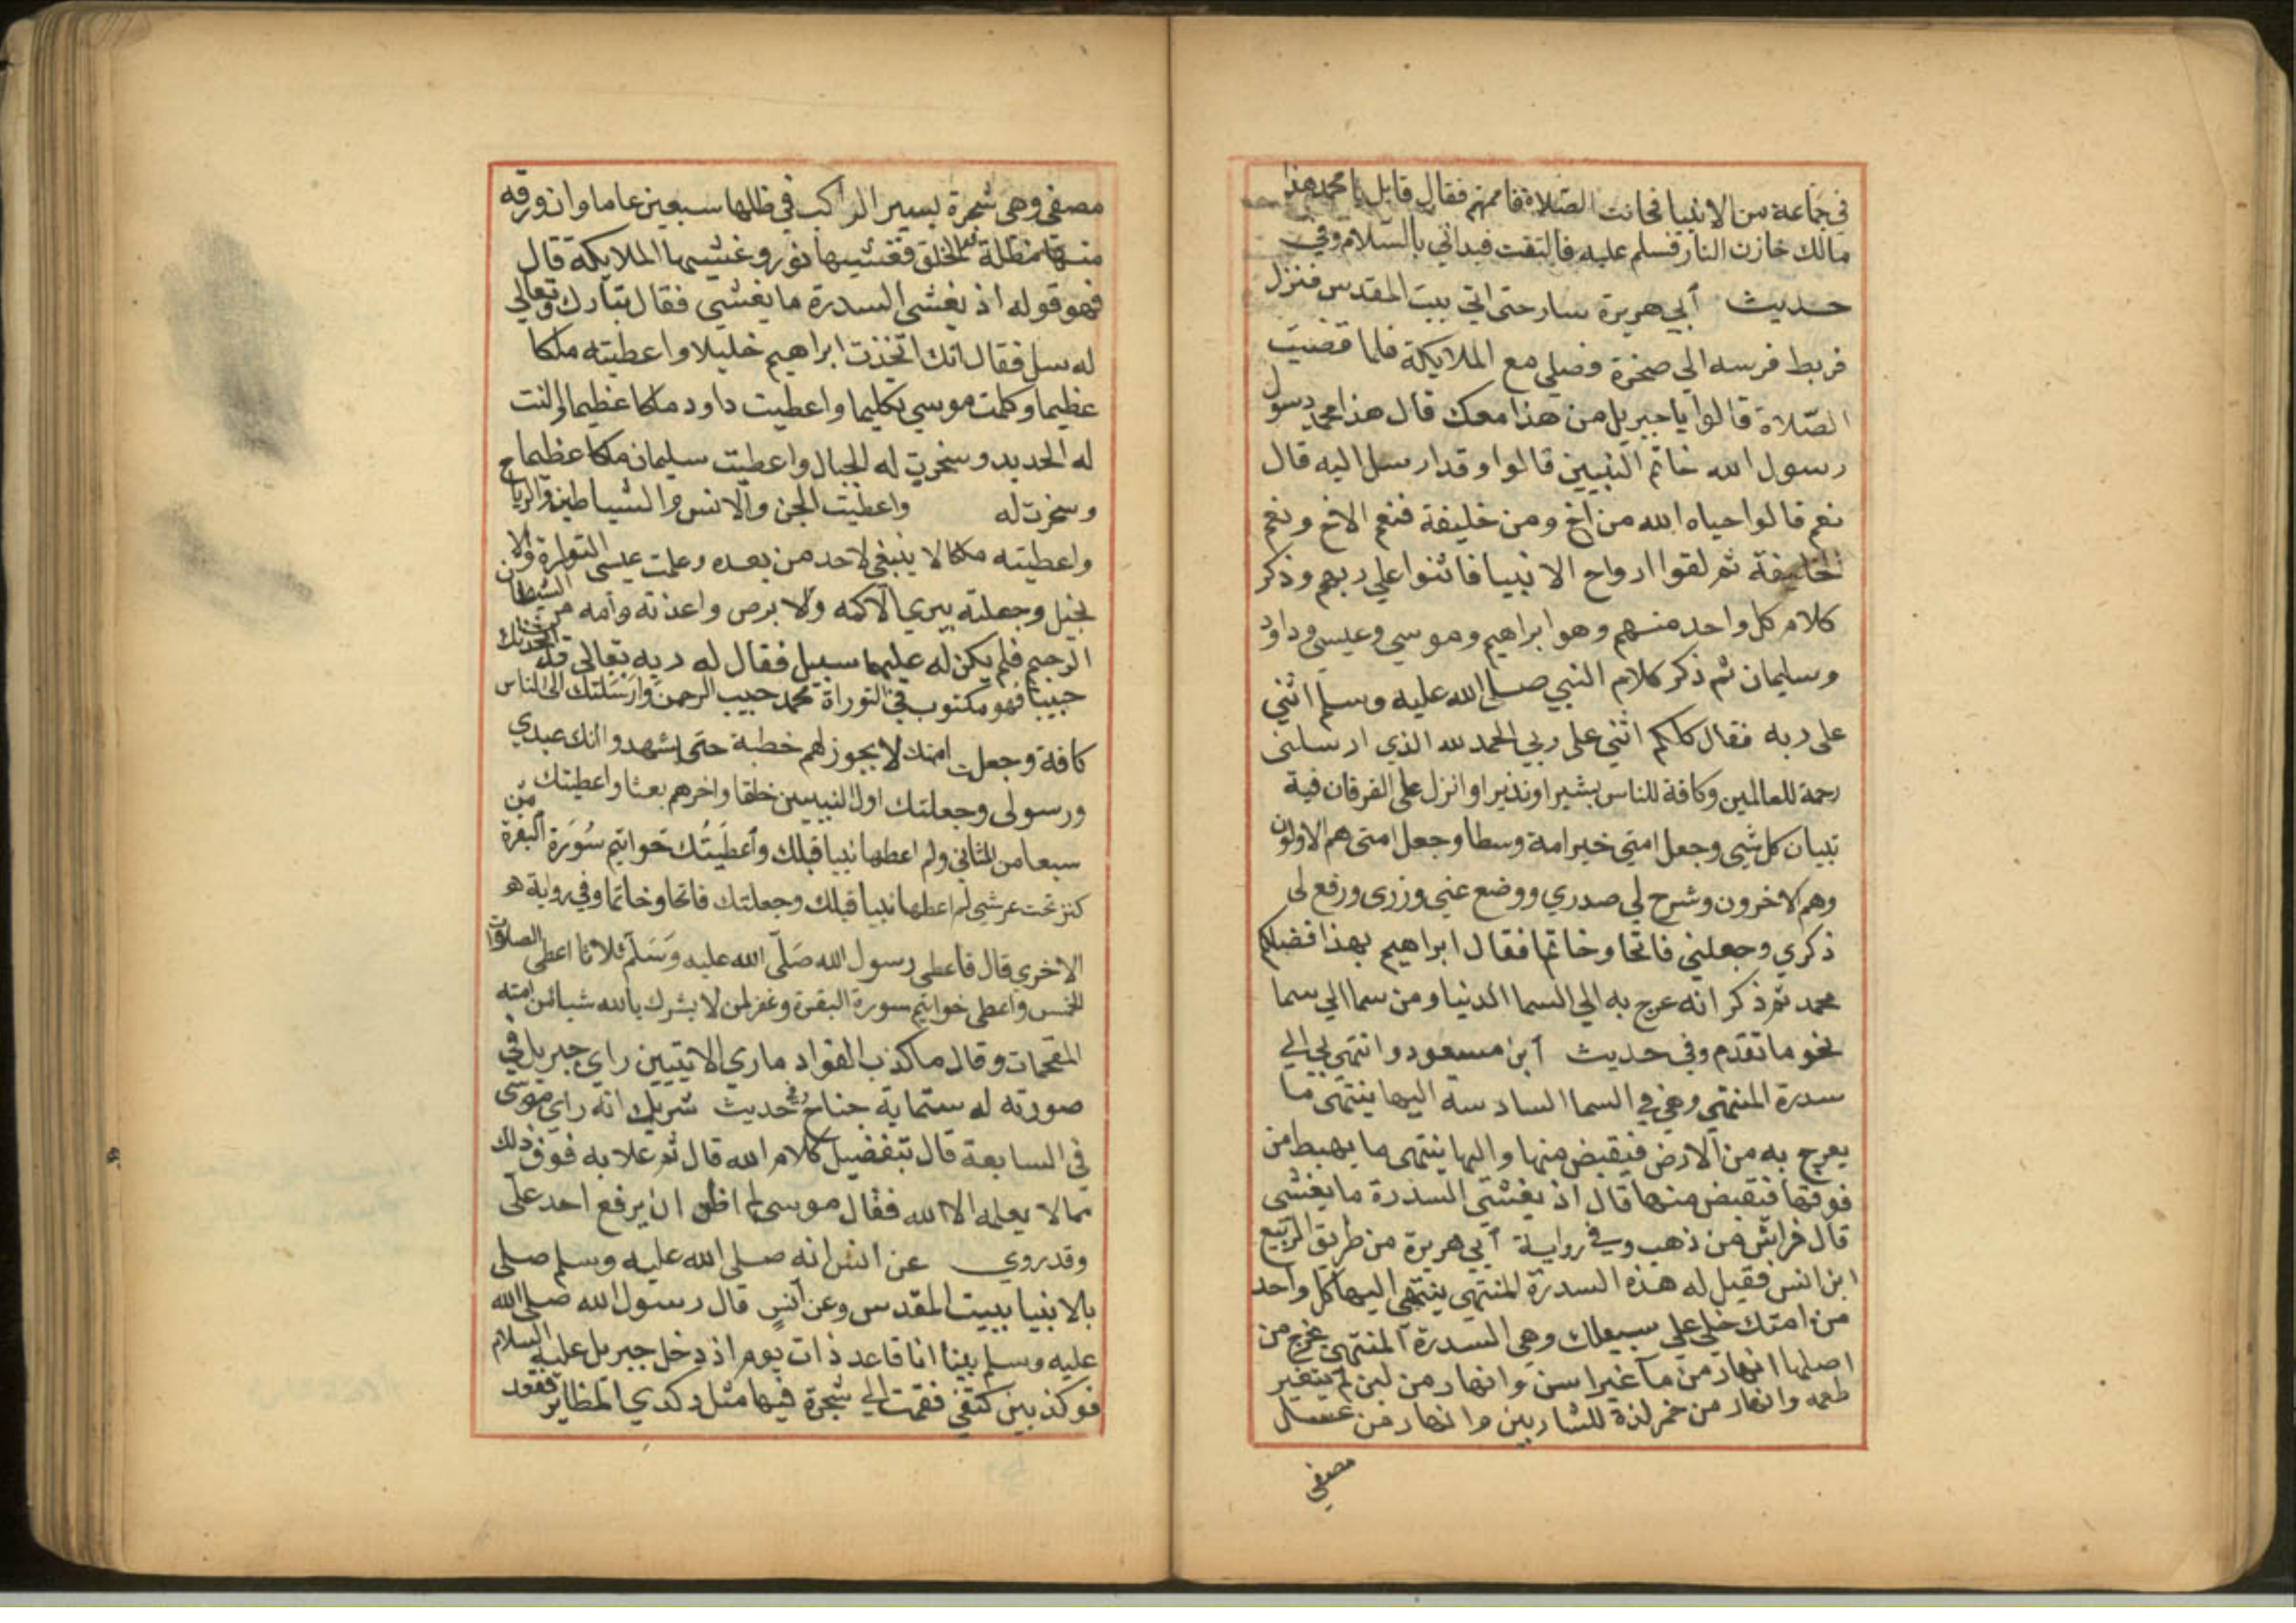 في جماعة من الانبيا فحانت الصّلاة فاممتهم فقال قايل يا محمد هذا
مالك خازن النار فسلم عليه فالتفت فبداني بالسّلام وفي
حديث أبي هريرة سار حتى اتي بيت المقدس فنزل
فربط فرسه الي صخرة وصلي مع الملايكة فلما قضيت
الصّلاة قالوا يا جبريل من هذا معك قال هذا محمد رسول
رسول الله خاتم النبيين قالوا وقد ارسل اليه قال
نعم قالوا حياه الله من اخ ومن خليفة فنعم الاخ ونعم
الخليفة ثم لقوا ارواح الانبيا فاثنوا علي ربهم وذكر
كلام كل واحد منهم وهو ابراهيم وموسي وعيسي وداود
وسليمان ثم ذكر كلام النبي صلى الله عليه وسلم اثني
على ربه فقال كلكم اثني على ربي الحمد لله الذي ارسلني
رحمة للعالمين وكافة للناس بشيرا ونذيرا وانزل علي الفرقان فية
تبيان كل شي وجعل امتي خير امة وسطا وجعل امتي هم الاولون
وهم الاخرون وشرح لي صدري ووضع عني وزري ورفع لي
ذكري وجعلني فاتحا وخاتما فقال ابراهيم بهذا فضلكم
محمد ثم ذكر انه عرج به الي السما الدنيا ومن سما الي سما
نحو ما تقدم وفي حديث أبن مسعود وانتهي بي الي
سدرة المنتهي وهي في السما السادسة اليها ينتهي ما
يعرج به من الارض فيقبض منها واليها ينتهي ما يهبط من
فوقها فيقبض منها قال اذ يغشي السدرة ما يغشي
قال فراش من ذهب وفي رواية أبي هريرة من طريق الربيع
ابن انس فقيل له هذه السدرة المنتهي ينتهي اليها كل واحد
من امتك خلي علي سبيلك وهي السدرة المنتهي يخرج من
اصلها انهار من ما غير اسن وانهار من لبن لم يتغير
طعمه وانهار من خمر لذة للشاربين وانهار من عسل
مصفي
مصفي وهي شجرة يسير الراكب في ظلها سبعين عاما وان ورقه
منها مظلة الخلق فغشيها نور وغشيها الملايكة قال
فهو قوله اذ يغشي السدرة ما يغشي فقال تبارك وتعالي
له سل فقال انك اتخذت ابراهيم خليلا واعطيته ملكا
عظيما وكلمت موسي تكليما واعطيت داود ملكا عظيما والنت
له الحديد وسخرت له الجبال واعطيت سليمان ملكا عظيما
وسخرت له واعطيت الجن والانس والشياطين والرياح
واعطيته ملكا لا ينبغي لاحد من بعده وعلمت عيسى التوارة والان
نجيل وجعلته يبري الاكمه والابرص واعذته وامه من الشيطان
الرجيم فلم يكن له عليهما سبيل فقال له ربه تعالى قد اتخذتك
حبيبا فهو مكتوب في التوراة محمد حبيب الرحمن وارسلتك الى الناس
كافة وجعلت امتك لا يجوز لهم خطبة حتى يشهدوا انك عبدي
ورسولي وجعلتك اول النبيين خلقا واخرهم بعثا واعطيتك
سبعا من المثاني ولم اعطها نبيا قبلك وأعطَيتُك خواتيم سُورَة البقرة من
كنز تحت عرشي لم اعطها نبيا قبلك وجعلتك فاتحا وخاتما وفي رواية هو
الاخري قال فاعطي رسول الله صَلّى الله عليه وَسَلّم ثلاثا اعطي الصلاوات
الخمس واعطي خواتيم سورة البقرة وغفر لمن لا يشرك بالله شيا من امته
المقحمات وقال ما كذب الفواد ما راي الايتيين راي جبريل في
صورته له ستماية جناح وفي حديث شريك انه راي موسى
في السابعة قال بتفضيل كلام الله قال ثم علا به فوق ذلك
بما لا يعلمه الا الله فقال موسى لم اظن ان يرفع احد علي
وقد روي عن انس انه صلى الله عليه وسلم صلى
بالانبيا ببيت المقدس وعن أنس قال رسول الله صلى الله
عليه وسلم بينا انا قاعد ذات يوم اذ دخل جبريل عليه السلام
فوكذ بين كتفي فقمت الي شجرة فيها مثل وكدي الطاير فقعد